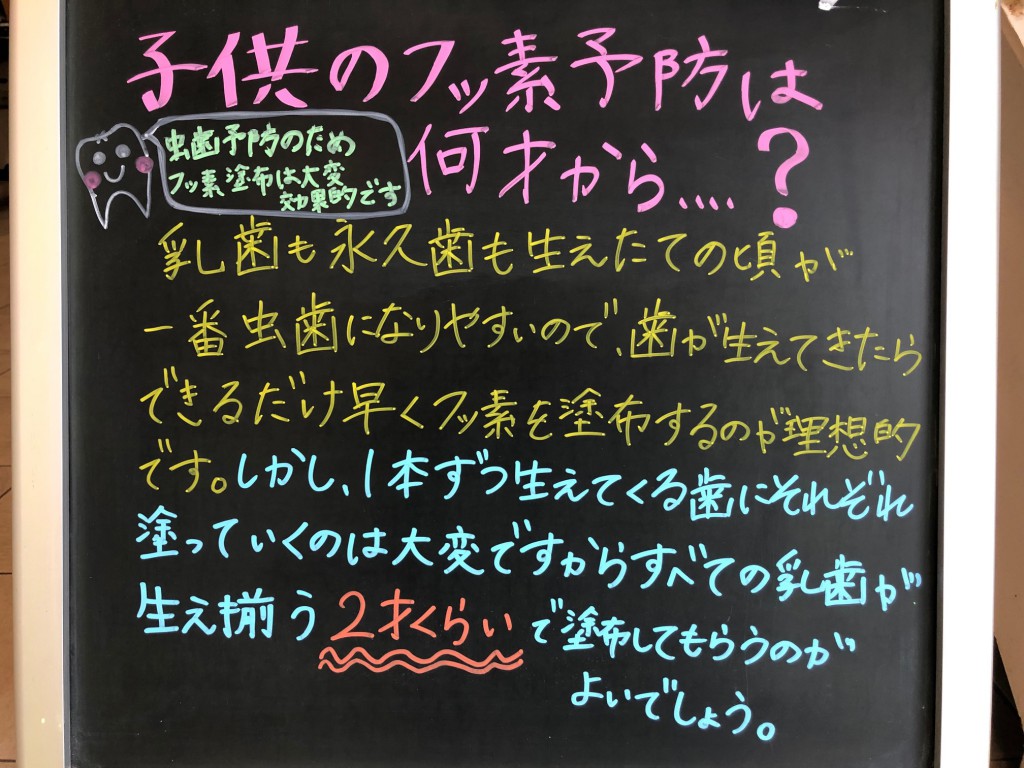 子供のフッ素予防は
何才から....?
虫歯予防のため
フッ素塗布は大変
効果的です
乳歯も永久歯も生えたての頃が
一番虫歯になりやすいので、歯が生えてきたら
できるだけ早くフッ素を塗布するのが理想的
です。しかし、1本ずつ生えてくる歯にそれぞれ
塗っていくのは大変ですからすべての乳歯が
生え揃う2才くらいで塗布してもらうのが
よいでしょう。